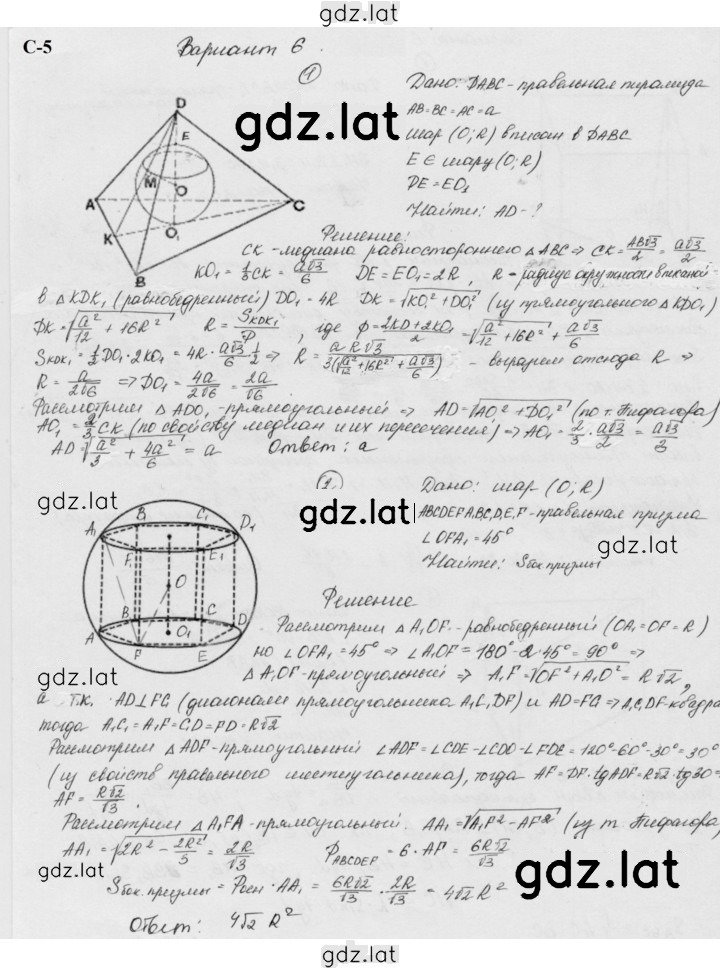 gdz.lat
С-5
Вариант 6.
1
Дано: DABC - правильная пирамида
AB=BC=AC=a
шар (O;R) вписан в DABC
E ∈ шару (O;R)
DE=EO₁
Найти: AD-?
gdz.lat
D
E
M
O
A
C
O₁
K
B
Решение:
CK - медиана равностороннего △ABC ⇒ CK = AB√3/2 = a√3/2
KO₁ = 1/3 CK = a√3/6 DE = EO₁ = 2R, R - радиус окружности вписаной
в △KDK₁ (равнобедренный) DO₁ = 4R DK = √(KO₁² + DO₁²) (из прямоугольного △KDO₁)
DK = √(a²/12 + 16R²) R = S_KDK₁/P, где p = (2KD+2KO₁)/2 = √(a²/12 + 16R²) + a√3/6
S_KDK₁ = 1/2 DO₁·2KO₁ = 4R·a√3/6·1/2 ⇒ R = aR√3/3(√(a²/12 + 16R²) + a√3/6) - выразим отсюда R ⇒
R = a/2√6 ⇒ DO₁ = 4a/2√6 = 2a/√6
Рассмотрим △ADO₁ - прямоугольный ⇒ AD = √(AO₁² + DO₁²) (по т. Пифагора)
AO₁ = 2/3 CK (по свойству медиан и их пересечения) ⇒ AO₁ = 2/3 · a√3/2 = a√3/3
AD = √(a²/3 + 4a²/6) = a Ответ: a
gdz.lat
2.
gdz.lat
Дано: шар (O;R)
ABCDEFA₁B₁C₁D₁E₁F₁ - правильная призма
∠OFA₁ = 45°
gdz.lat
Найти: Sбок призмы
A₁
B₁
C₁
D₁
F₁
E₁
O
A
B
C
D
O₁
F
E
Решение
Рассмотрим △A₁OF - равнобедренный (OA₁=OF=R)
но ∠OFA₁ = 45° ⇒ ∠A₁OF = 180° - 2·45° = 90° ⇒
△A₁OF - прямоугольный ⇒ A₁F = √(OF² + A₁O²) = R√2,
а т.к. AD⊥FC (диагонали прямоугольника A₁C₁DF) и AD=FC ⇒ A₁C₁DF - квадрат
тогда A₁C₁ = A₁F = C₁D = FD = R√2
Рассмотрим △ADF - прямоугольный ∠ADF = ∠CDE - ∠CDO - ∠FDE = 120° - 60° - 30° = 30°
(из свойств правильного шестиугольника), тогда AF = DF·tgADF = R√2·tg30 =
AF = R√2/√3.
Рассмотрим △A₁FA - прямоугольный. AA₁ = √(A₁F² - AF²) (из т. Пифагора)
AA₁ = √(2R² - 2R²/3) = 2R/√3 P_ABCDEF = 6·AF = 6R√2/√3
Sбок. призмы = Pосн · AA₁ = 6R√2/√3 · 2R/√3 = 4√2 R²
Ответ: 4√2 R²
gdz.lat
gdz.lat
gdz.lat